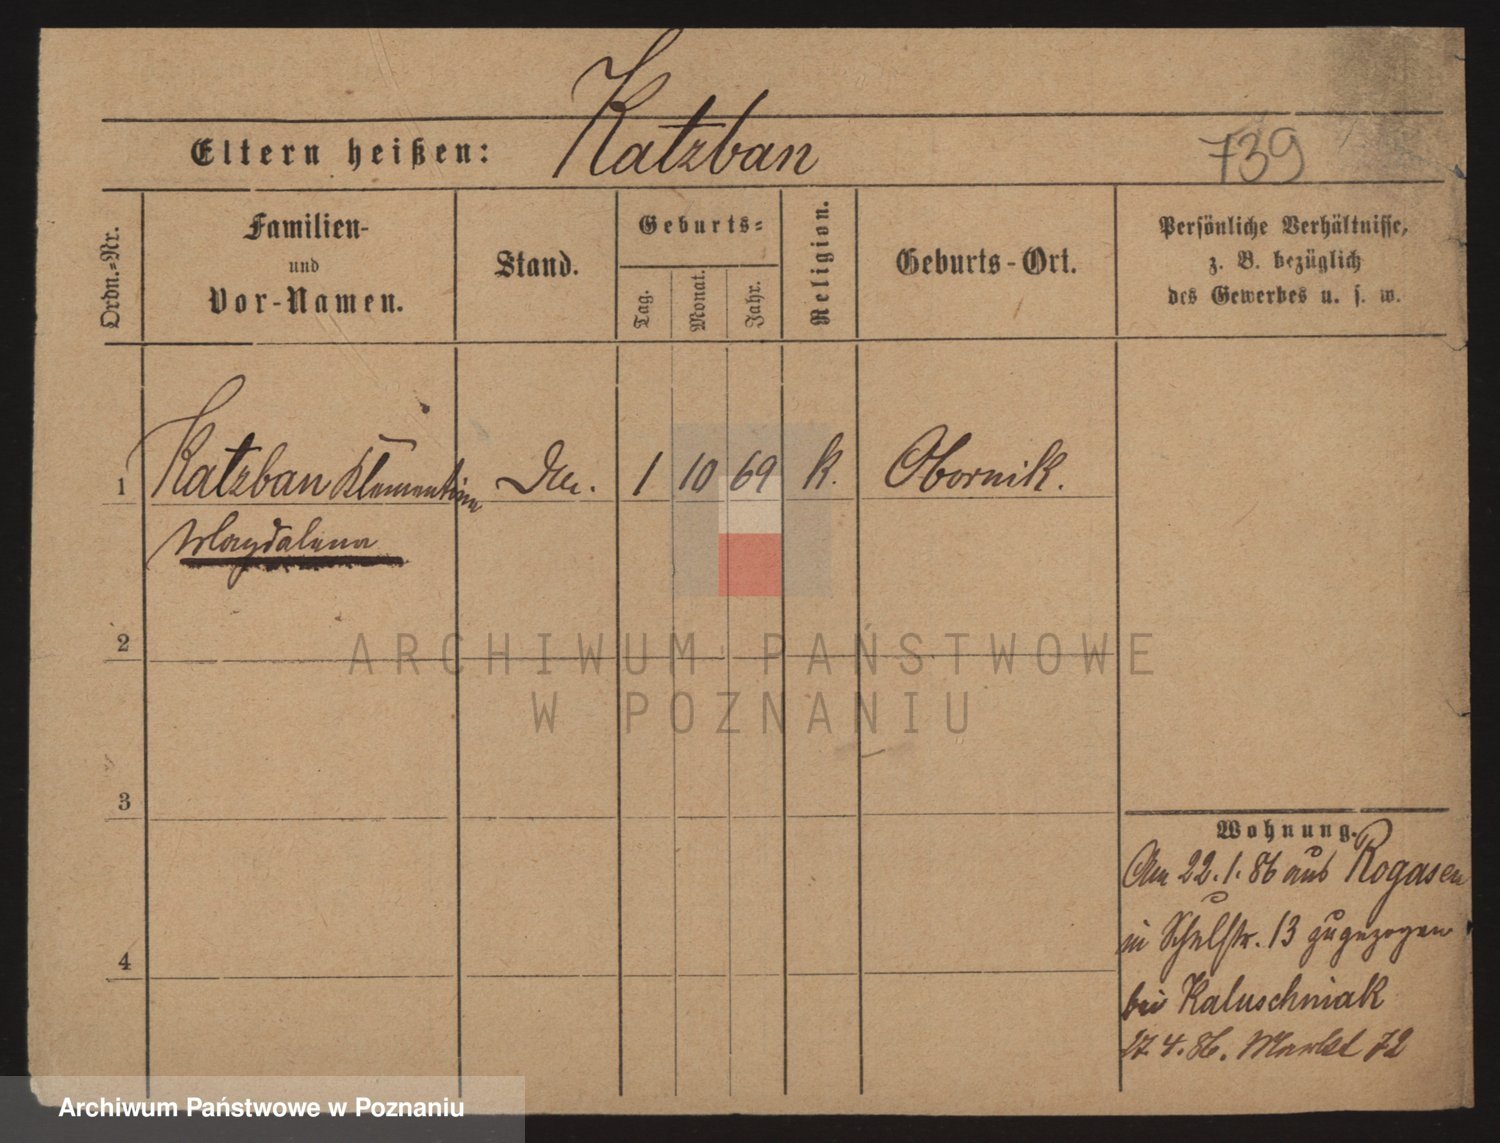 Eltern heißen: Katzban
739
Ordn.-Nr.
Familien-
und
Vor-Namen.
Stand.
Geburts-
Tag.
Monat.
Jahr.
Religion.
Geburts-Ort.
Persönliche Verhältnisse,
z. B. bezüglich
des Gewerbes u. s. w.
1 Katzban Klementine 1 10 69 k. Obornik.
Magdalena
2
ARCHIWUM PAŃSTWOWE
W POZNANIU
3
Wohnung.
Am 22.1.86 aus Rogasen
in Schulstr. 13 zugezogen
4
bei Kaluschniak
27.4.86. Markt 72
Archiwum Państwowe w Poznaniu